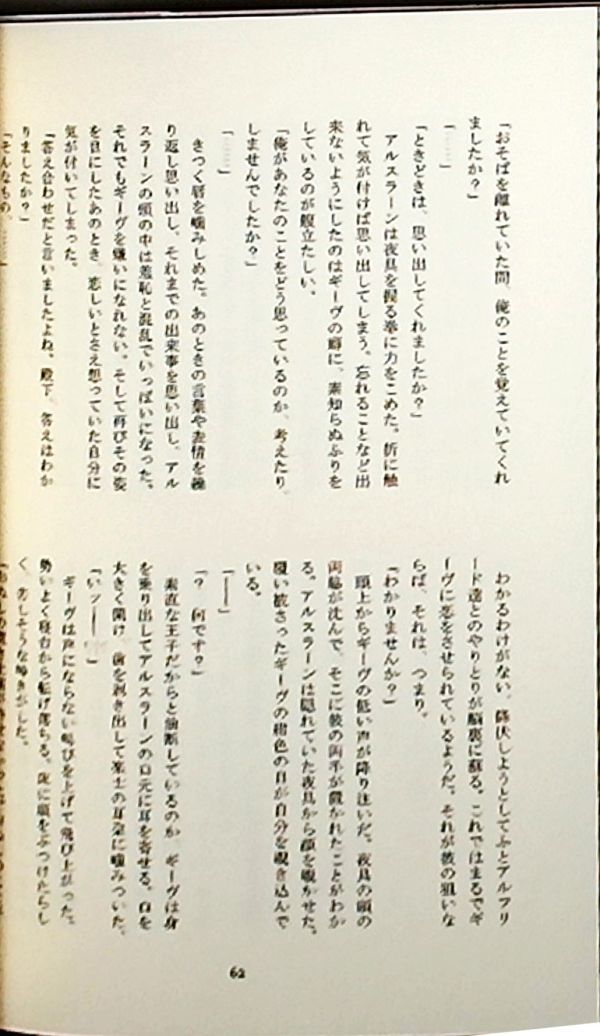 「おそばを離れていた間、俺のことを覚えていてくれ
ましたか？」
「……」
「ときどきは、思い出してくれましたか？」
アルスラーンは夜具を握る拳に力をこめた。折に触
れて気が付けば思い出してしまう。忘れることなど出
来ないようにしたのはギーヴの癖に、素知らぬふりを
しているのが腹立たしい。
「俺があなたのことをどう思っているのか、考えたり
しませんでしたか？」
「……」
きつく唇を噛みしめた。あのときの言葉や表情を繰
り返し思い出し、それまでの出来事を思い出し、アル
スラーンの頭の中は羞恥と混乱でいっぱいになった。
それでもギーヴを嫌いになれない。そして再びその姿
を目にしたあのとき、恋しいとさえ想っていた自分に
気が付いてしまった。
「答え合わせだと言いましたよね。殿下、答えはわか
りましたか？」
「そんなもの、……」
わかるわけがない。降伏しようとしてふとアルフリ
ード達とのやりとりが脳裏に蘇る。これではまるでギ
ーヴに恋をさせられているようだ。それが彼の狙いな
らば、それは、つまり。
「わかりませんか？」
頭上からギーヴの低い声が降り注いだ。夜具の頭の
両脇が沈んで、そこに彼の両手が置かれたことがわか
る。アルスラーンは隠れていた夜具から顔を覗かせた。
覆い被さったギーヴの紺色の目が自分を覗き込んで
いる。
「――」
「？　何です？」
素直な王子だからと油断しているのか、ギーヴは身
を乗り出してアルスラーンの口元に耳を寄せる。口を
大きく開け、歯を剥き出して楽士の耳朶に噛みついた。
「いッ――」
ギーヴは声にならない叫びを上げて飛び上がった。
勢いよく寝台から転げ落ちる。床に頭をぶつけたらし
く、苦しそうな呻きがした。
62